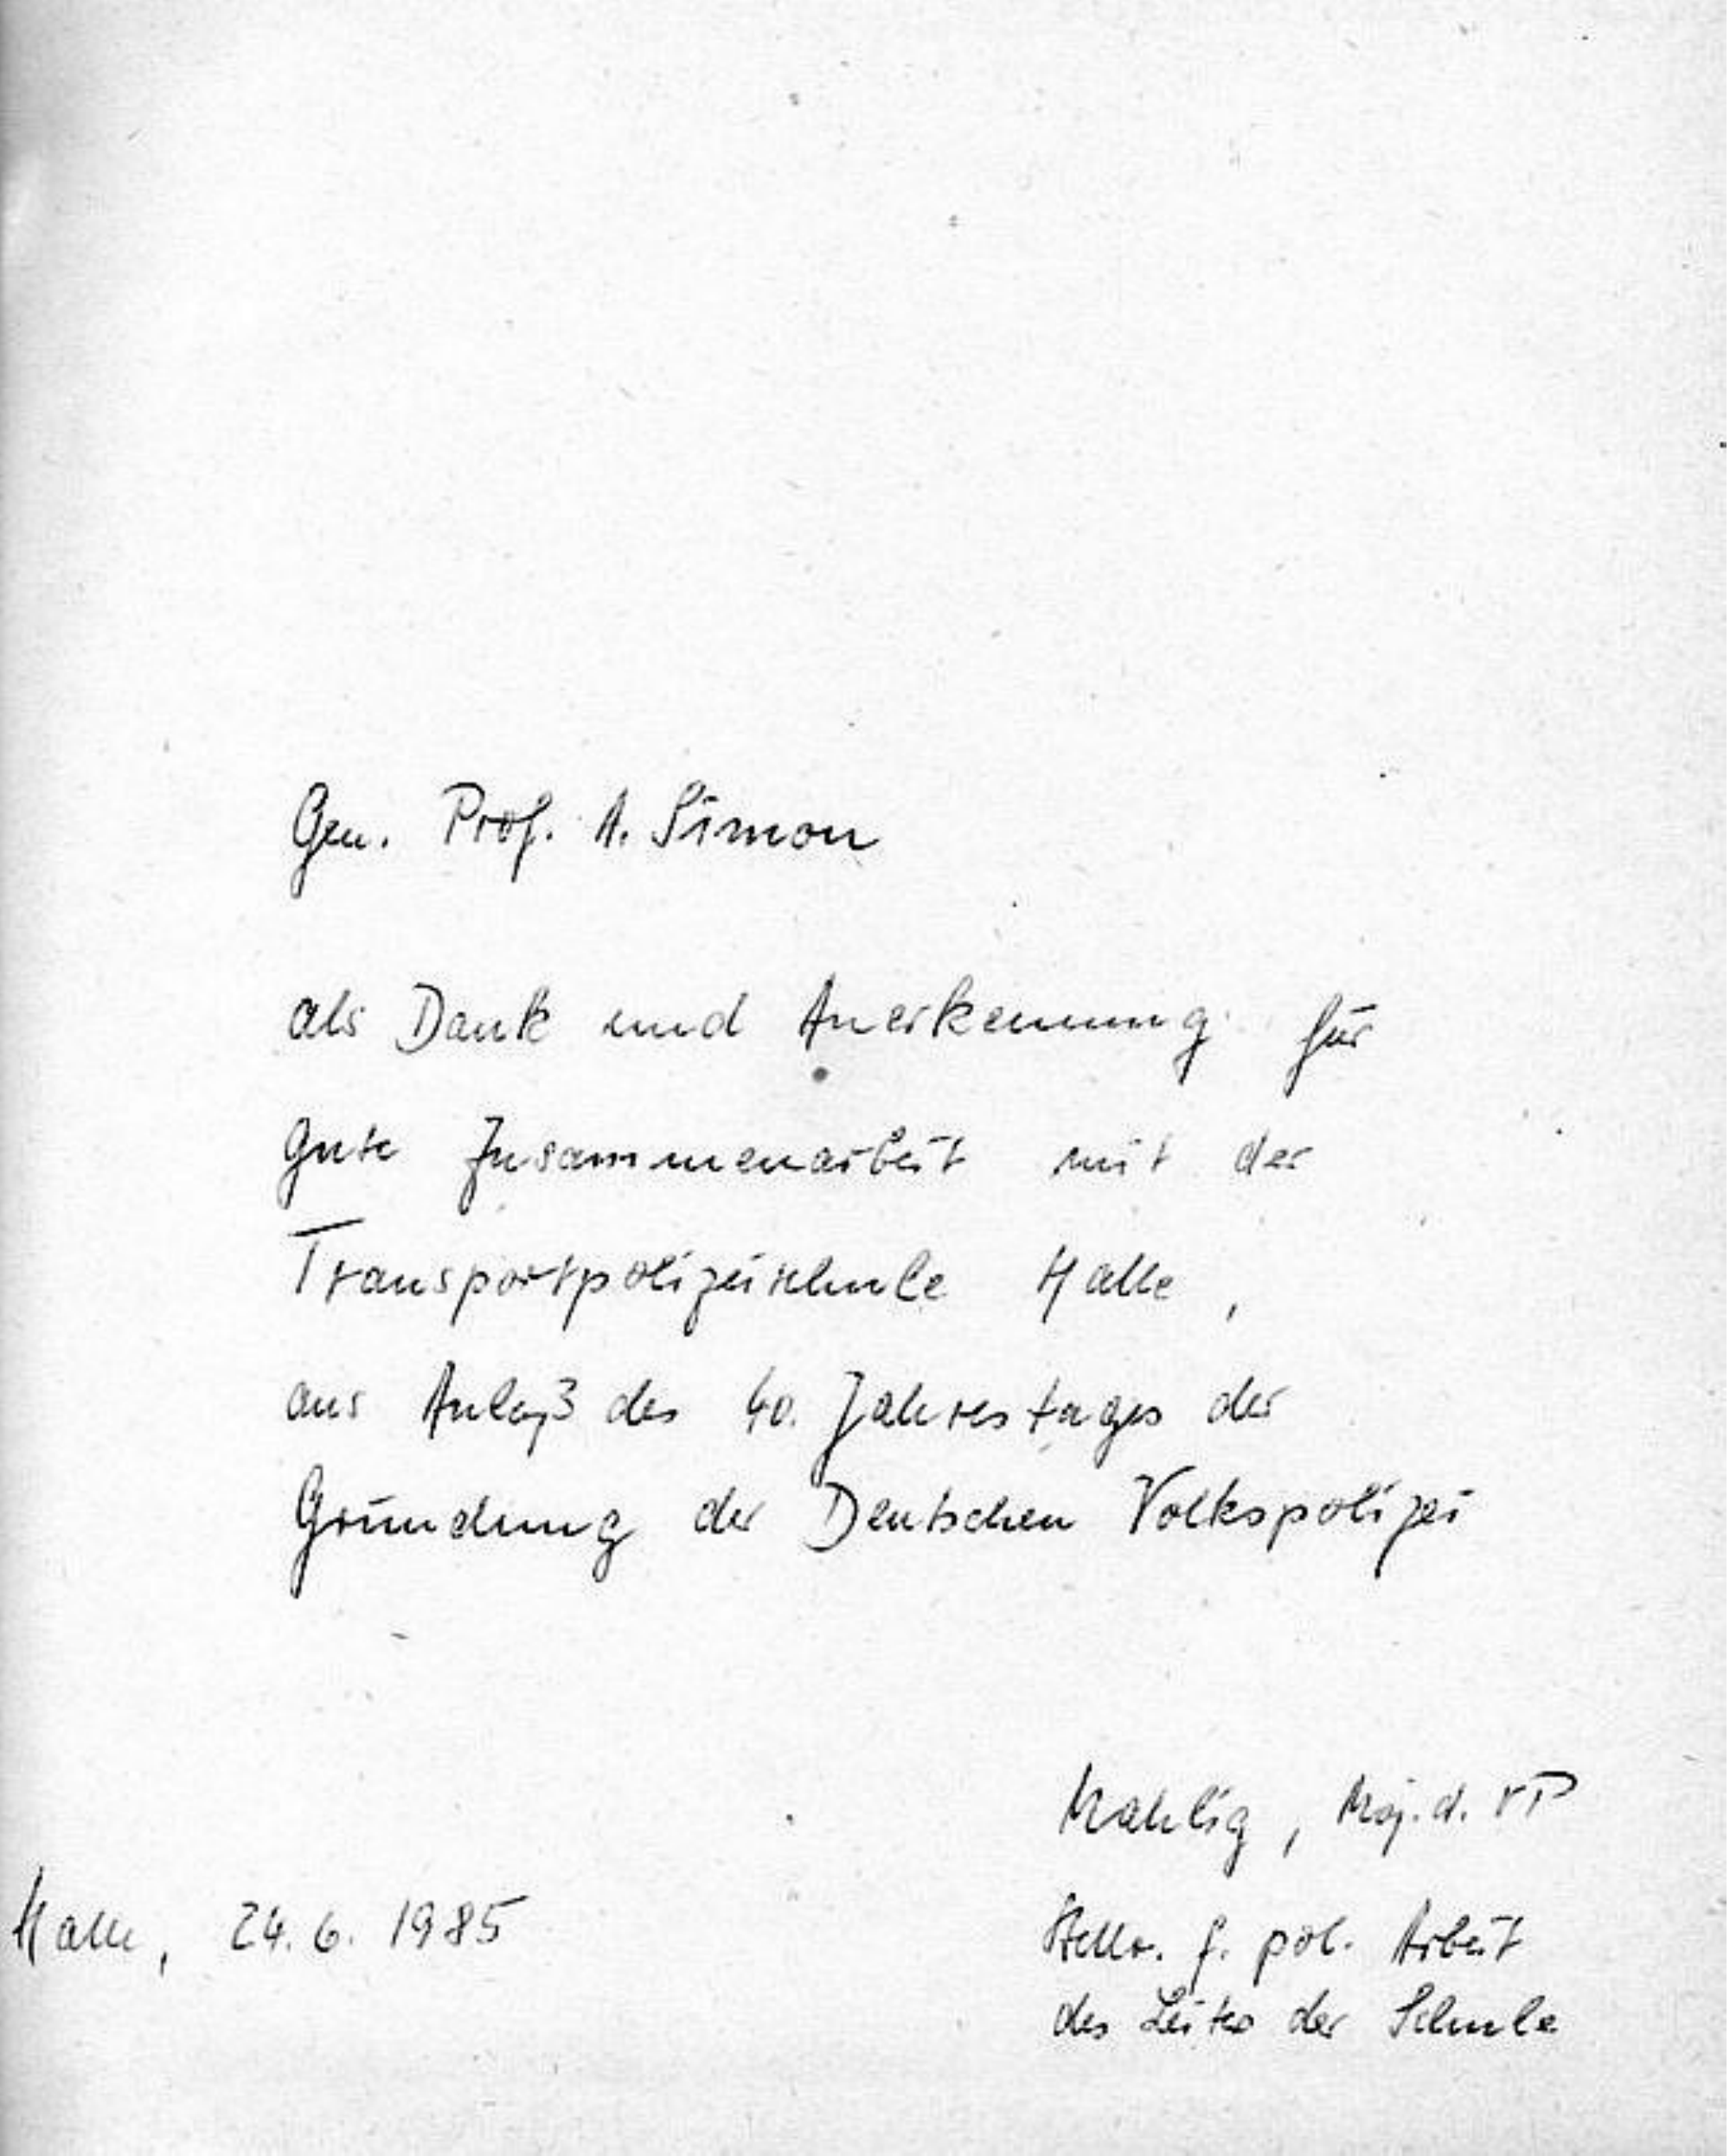 Gen. Prof. A. Simon
als Dank und Anerkennung für
gute Zusammenarbeit mit der
Transportpolizeischule Halle,
aus Anlaß des 40. Jahrestages der
Gründung der Deutschen Volkspolizei
Mahlig, Maj. d. VP
Halle, 24. 6. 1985
Stellv. f. pol. Arbeit
des Leiters der Schule